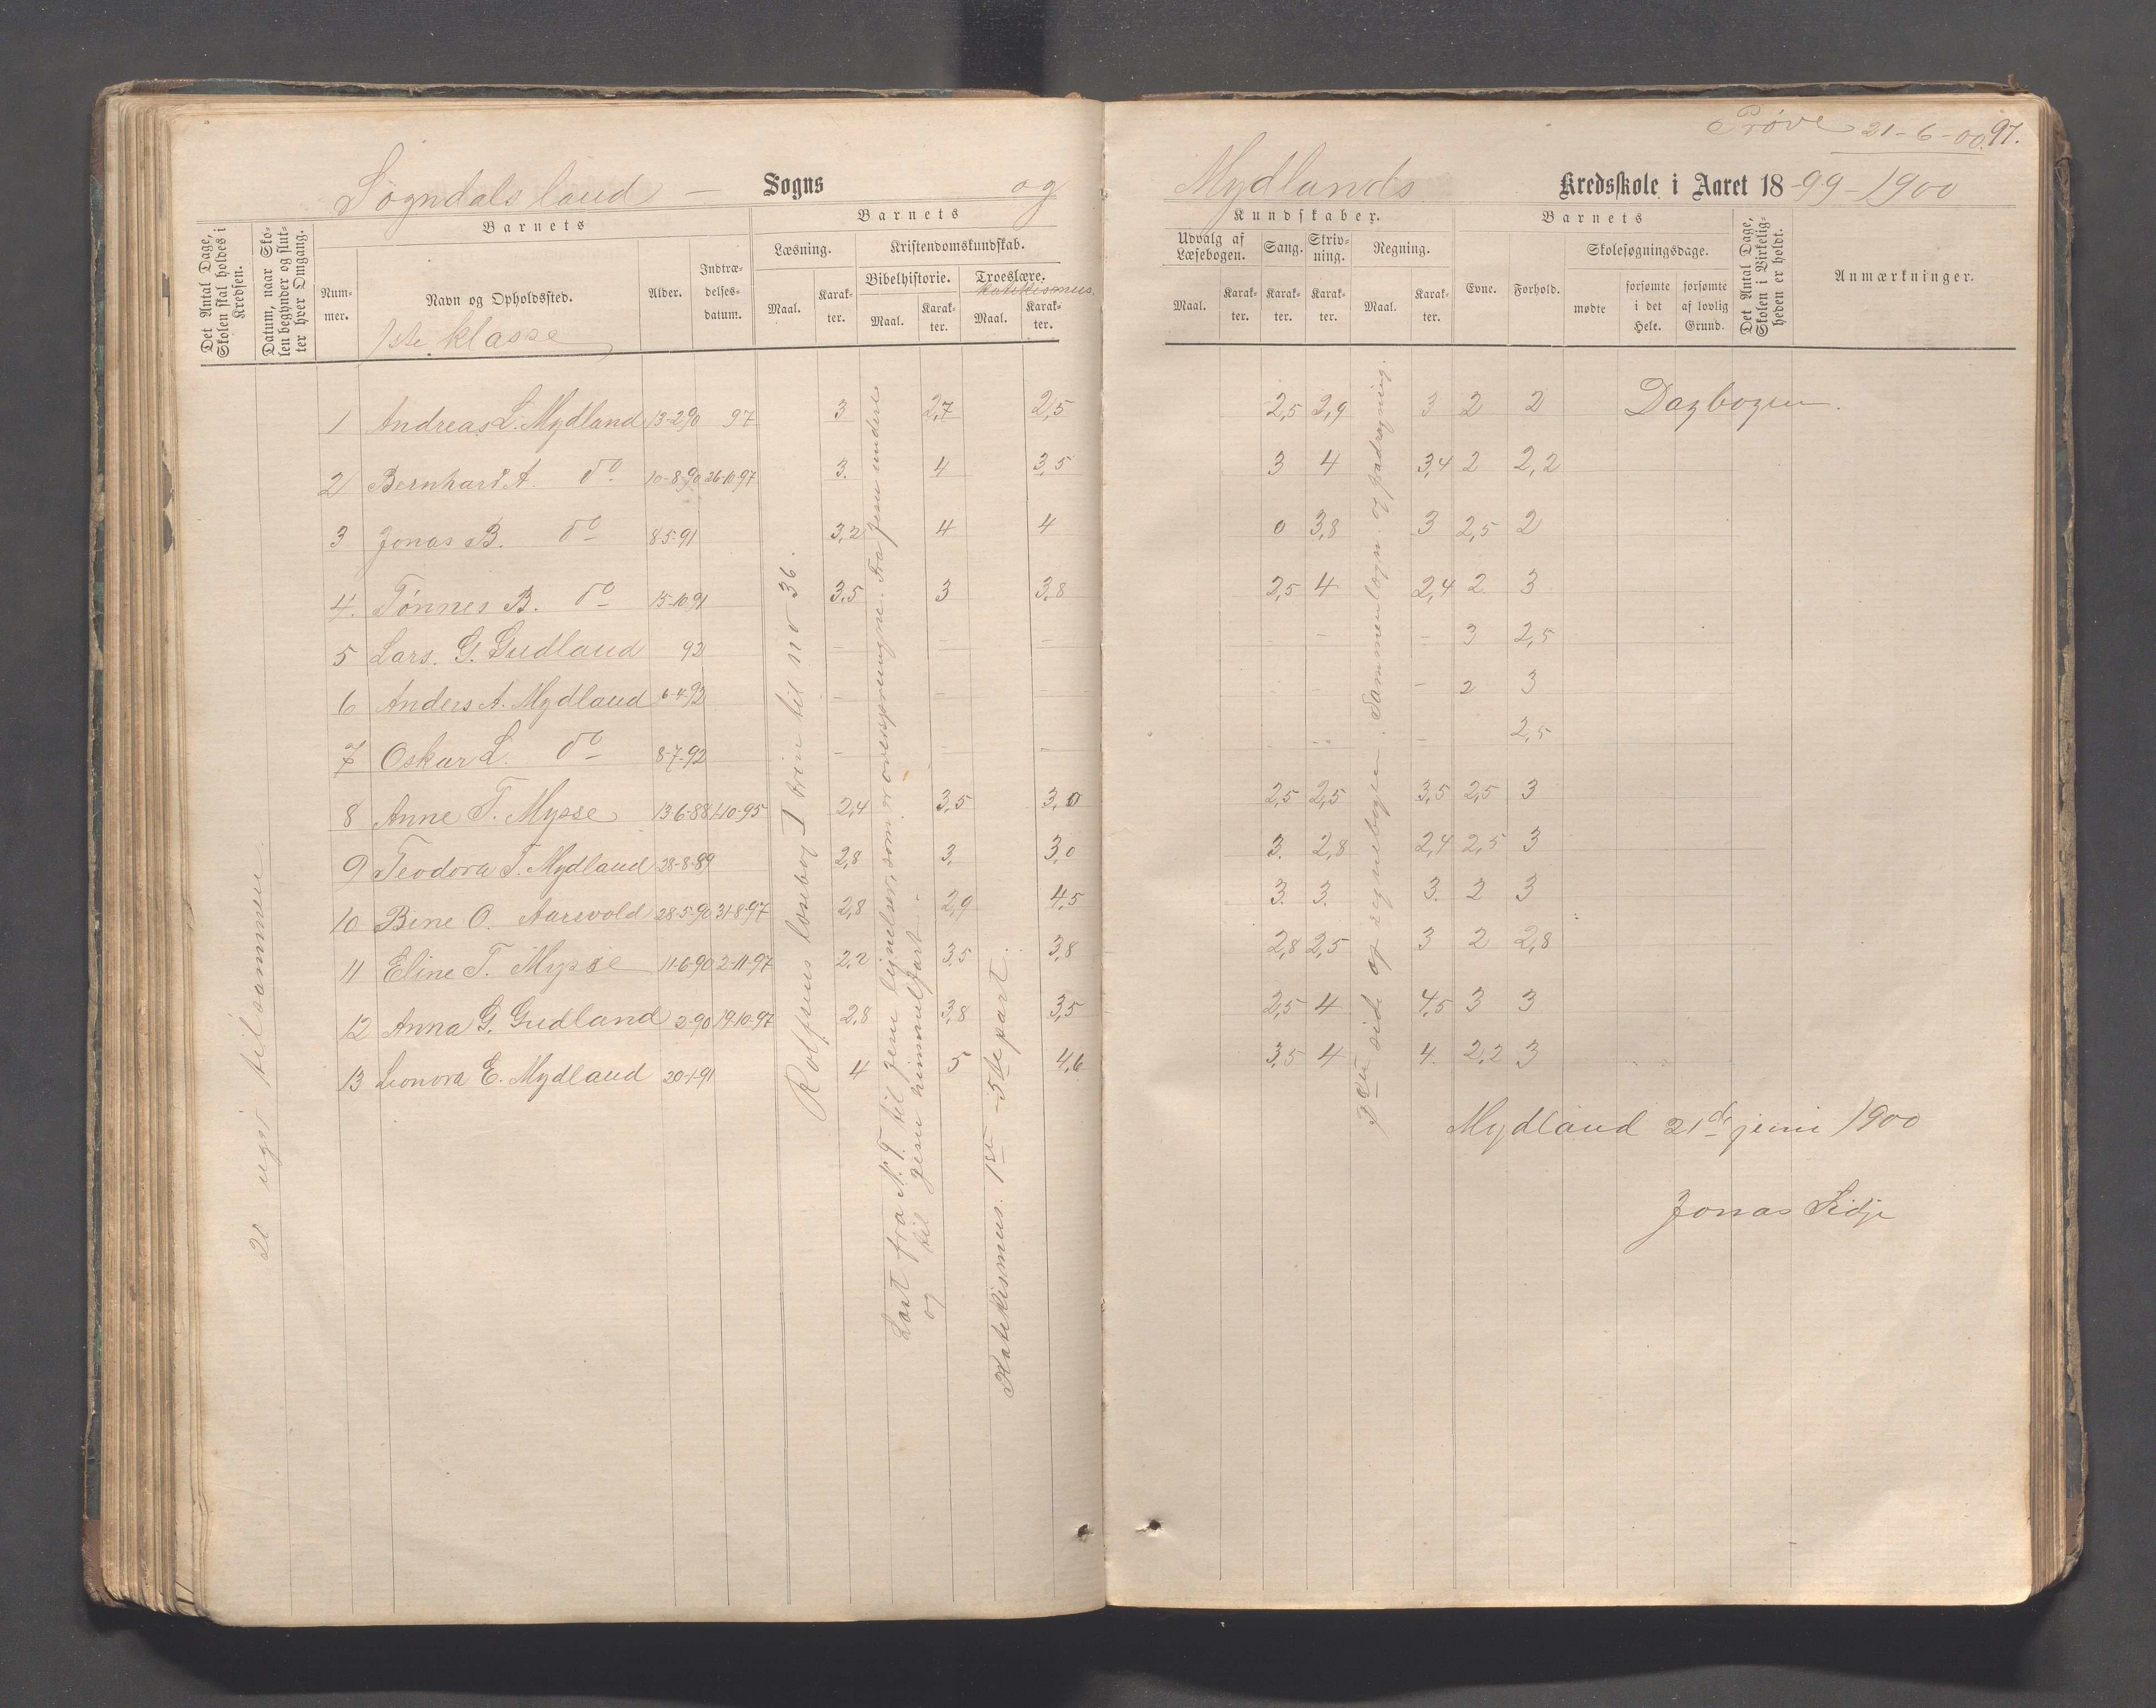 Prøve 21-6-00. 97.
Sogndals land – Sogns og Mydlands Kredsskole i Aaret 18-99-1900
Barnets Barnets Kundskaber. Barnets
Det Antal Dage, Skolen skal holdes i Kredsen.
Datum, naar Skolen begynder og slutter hver Omgang.
Nummer.
Navn og Opholdssted.
1ste klasse
Alder.
Indtrædelsesdatum.
Læsning. Maal. Karakter.
Kristendomskundskab.
Bibelhistorie. Maal. Karakter.
Troeslære. Katekismus. Maal. Karakter.
Udvalg af Læsebogen. Maal. Karakter.
Sang. Karakter.
Skrivning. Karakter.
Regning. Maal. Karakter.
Evne. Forhold.
Skolesøgningsdage.
mødte forsømte i det Hele. forsømte af lovlig Grund.
Det Antal Dage, Skolen i Virkeligheden er holdt.
Anmærkninger.
1 Andreas L. Mydland 13-2-90 97 3 2,7 2,5 2,5 2,9 3 2 2 Dagbogen.
2 Bernhard A. do 10-8-90 26-10-97 3. 4 3,5 3 4 3,4 2 2,2
3 Jonas B. do 8-5-91 3,2 4 4 0 3,8 3 2,5 2
4. Tønnes B. do 15-10-91 3,5 3 3,8 2,5 4 2,4 2 3
5 Lars. G. Gudland 92 – – – – – 3 2,5
6 Anders A. Mydland 6-4-92 – – – – – 2 3
7 Oskar L. do 8-7-92 – – – – – 2,5
8 Anne T. Mysse 13-6-88 1-10-95 2,4 3,5 3,0 2,5 2,5 3,5 2,5 3
9 Teodora T. Mydland 28-8-89 2,8 3. 3,0 3. 2,8 2,4 2,5 3
10 Bine O. Aarsvold 28-5-90 31-8-97 2,8 2,9 4,5 3. 3. 3. 2 3
11 Eline T. Mysse 11-6-90 2-11-97 2,2 3,5 3,8 2,8 2,5 3 2 2,8
12 Anna G. Gudland 2-90 19-10-97 2,8 3,8 3,5 2,5 4 4,5 3 3
13 Leonora E. Mydland 20-1-91 4 5 4,6 3,5 4 4. 2,2 3
20 uger tilsammen.
Rolfsens læsebog I trin til no 36.
Læst fra N.T. til jesu lignelser, som er oversprungne. Fra jesu underle
og til jesu himmelfart.
Katekismus. 1ste – 5te part.
3die side af regnebogen. Sammenlægn. og fradragning.
Mydland 21de juni 1900
Jonas Sidje